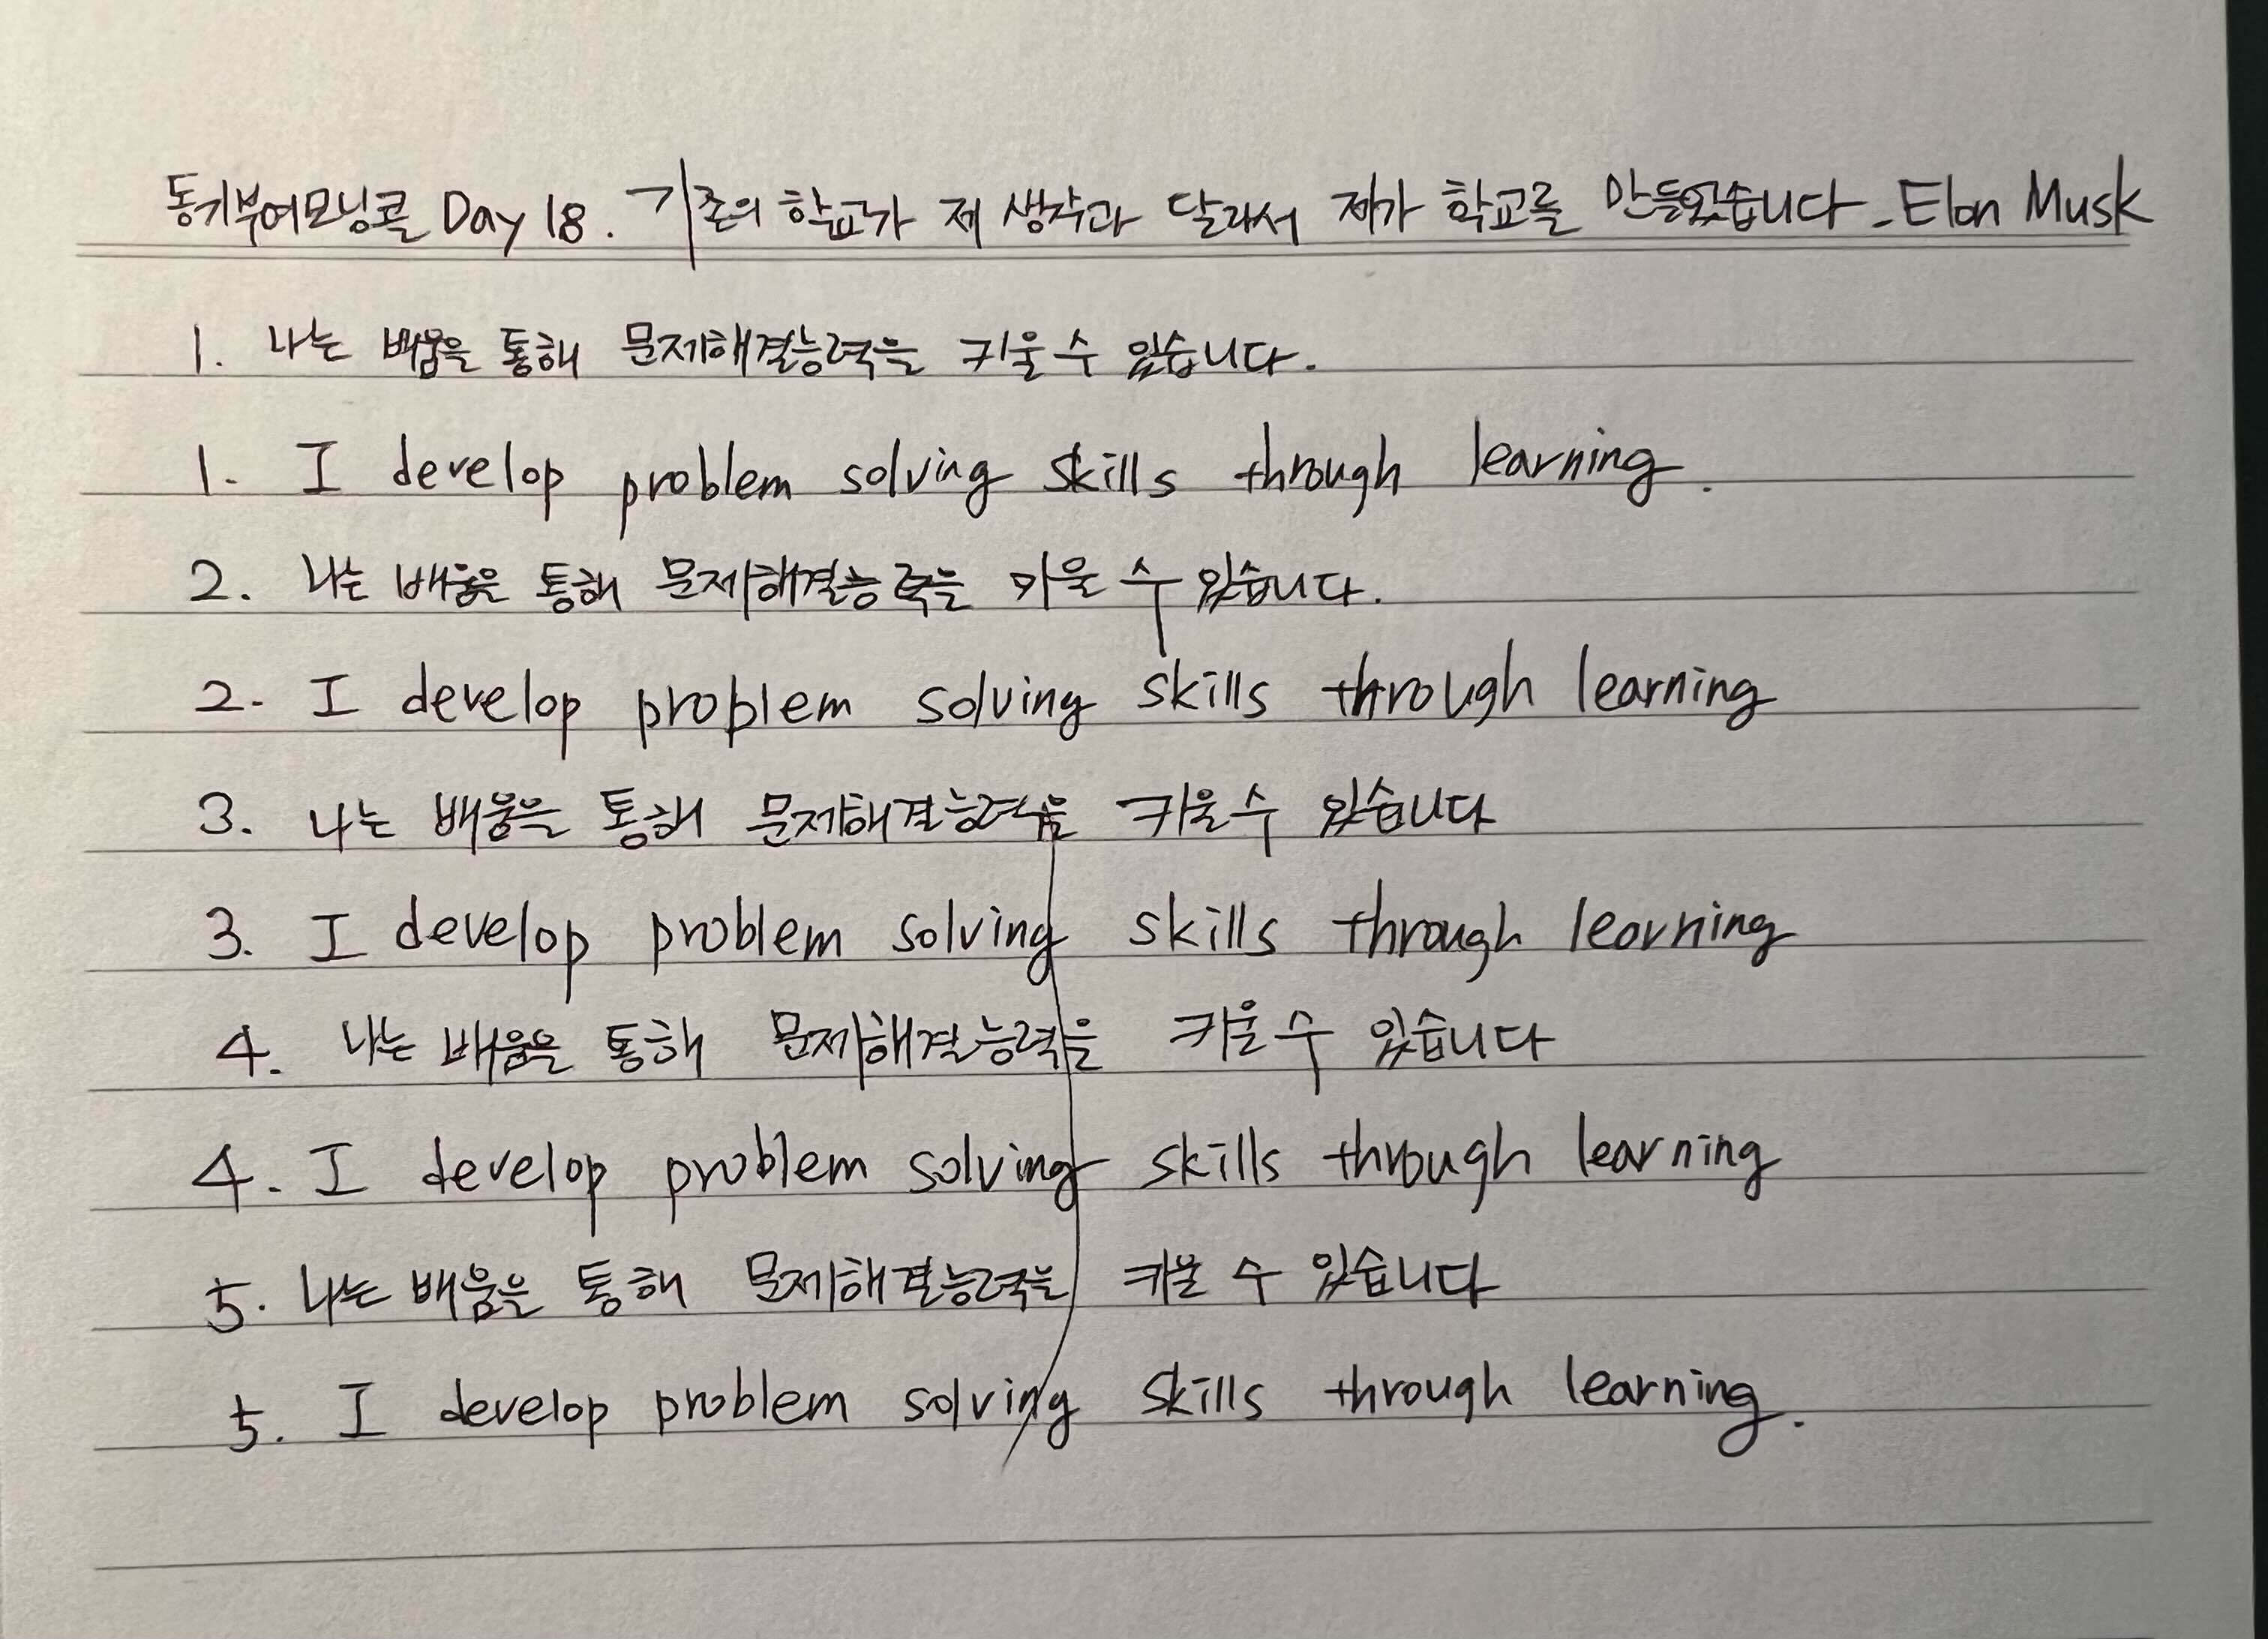 동기부여모닝콜 Day 18. 기존의 학교가 제 생각과 달라서 제가 학교를 만들었습니다 - Elon Musk
1. 나는 배움을 통해 문제해결능력을 키울 수 있습니다.
1. I develop problem solving skills through learning.
2. 나는 배움을 통해 문제해결능력을 키울 수 있습니다.
2. I develop problem solving skills through learning
3. 나는 배움을 통해 문제해결능력을 키울 수 있습니다
3. I develop problem solving skills through learning
4. 나는 배움을 통해 문제해결능력을 키울 수 있습니다
4. I develop problem solving skills through learning
5. 나는 배움을 통해 문제해결능력을 키울 수 있습니다
5. I develop problem solving skills through learning.